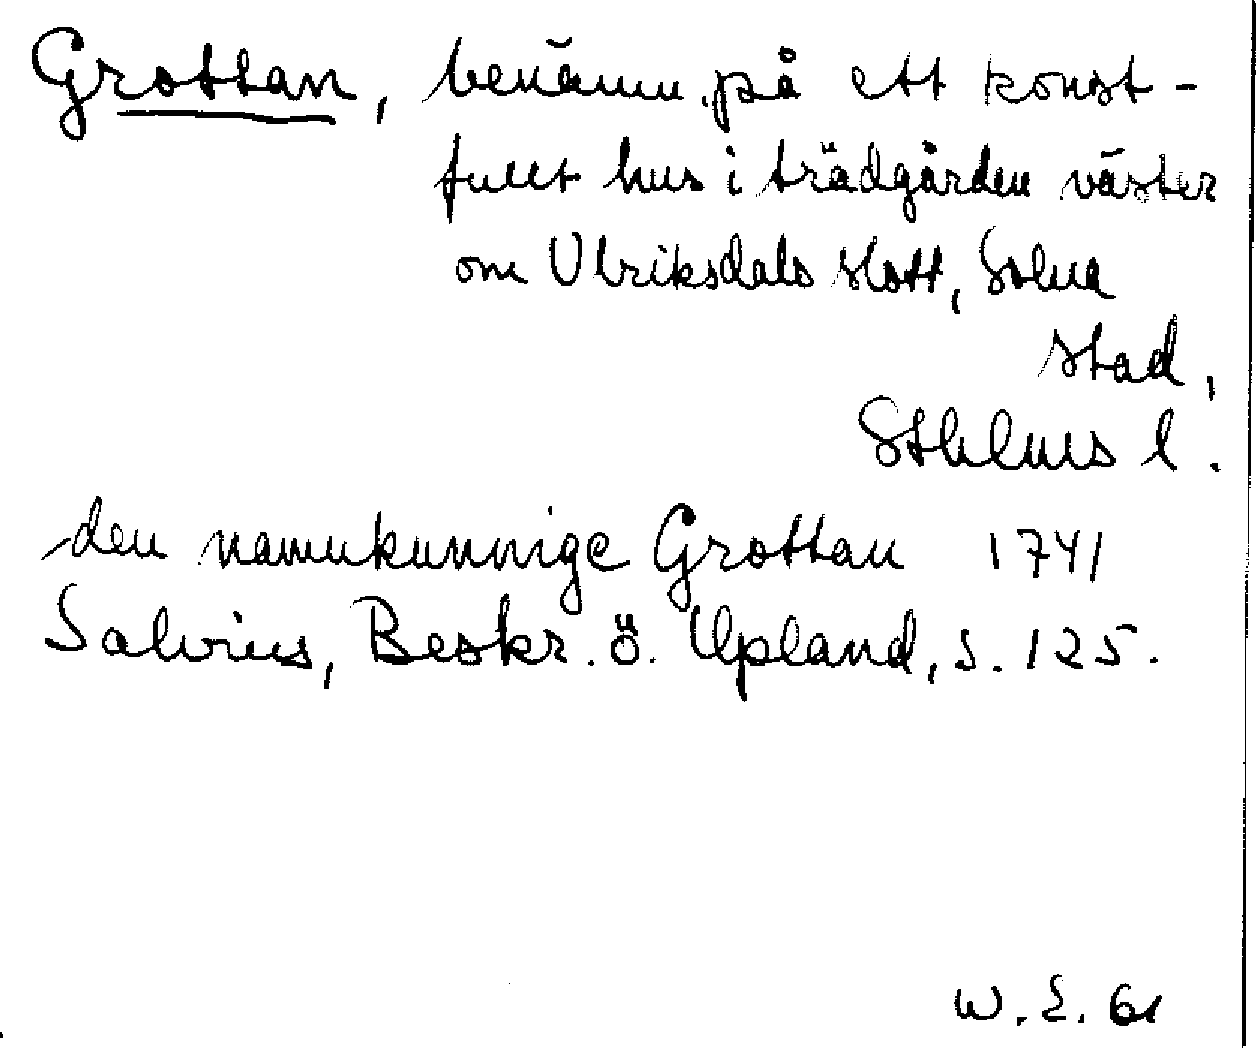 Grottan, benämn. på ett konst-
fullt hus i trädgården väster
om Ulriksdals slott, Solna
stad,
Sthlms l.
den namnkunnige Grottan 1741
Salvius, Beskr. ö. Upland, s. 125.
W. E. 61